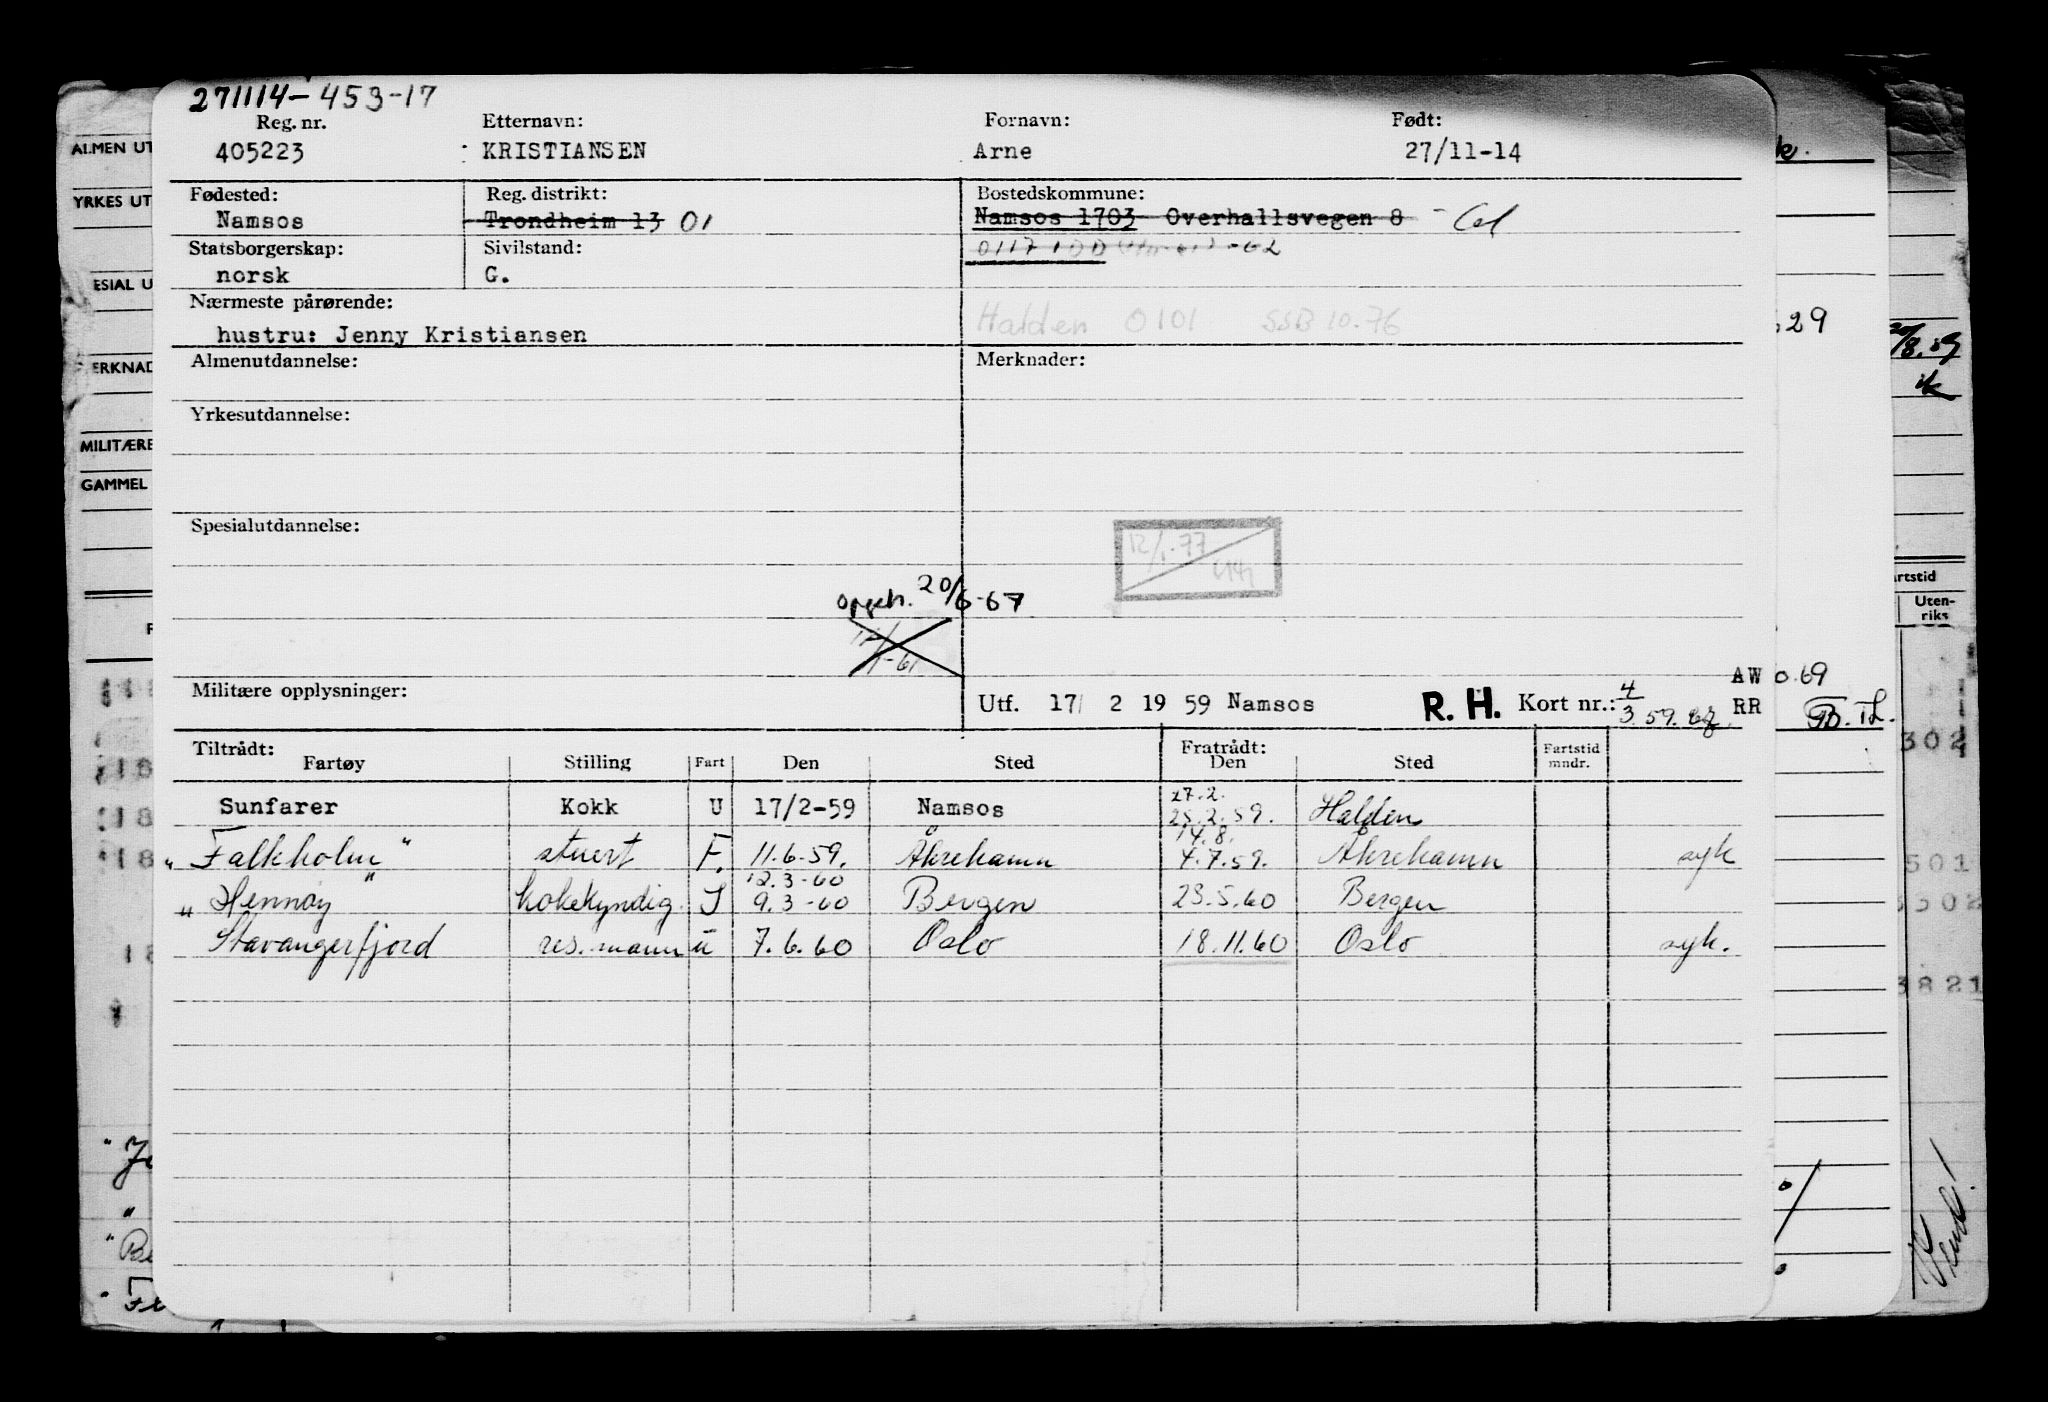 271114-453-17
Reg. nr. Etternavn: Fornavn: Født:
405223 KRISTIANSEN Arne 27/11-14
Fødested: Reg. distrikt: Bostedskommune:
Namsos Trondheim 13 01 Namsos 1703 Overhallsvegen 8
Statsborgerskap: Sivilstand: 0117
norsk G.
Nærmeste pårørende: Halden 0101 SSB 10.76
hustru: Jenny Kristiansen
Almenutdannelse: Merknader:
Yrkesutdannelse:
Spesialutdannelse:
12/1-77
Oppgitr. 20/6-67
Militære opplysninger:
Utf. 17/ 2 19 59 Namsos R. H. Kort nr.: 4/3 59. AW RR
Tiltrådt: Fratrådt:
Fartøy Stilling Fart Den Sted Den Sted Fartstid mndr.
Sunfarer Kokk U 17/2-59 Namsos 27.2. 25.2.59. Halden
"Falkholm" stuert F. 11.6-59. Åkrehamn 14.8. 4.7.59. Åkrehamn syk
"Hennøy" kokekyndig. I 12.3-60 9.3-60 Bergen 23.5.60 Bergen
Stavangerfjord res. mann u 7.6.60 Oslo 18.11.60 Oslo syk.
ALMEN UT
YRKES UT
ESIAL U
ERKNAD
MILITÆRE
GAMMEL
29
0.69
B. Th.
20/8.59
ik
artstid
Uten-
riks
302
501
3502
3821
Vend!